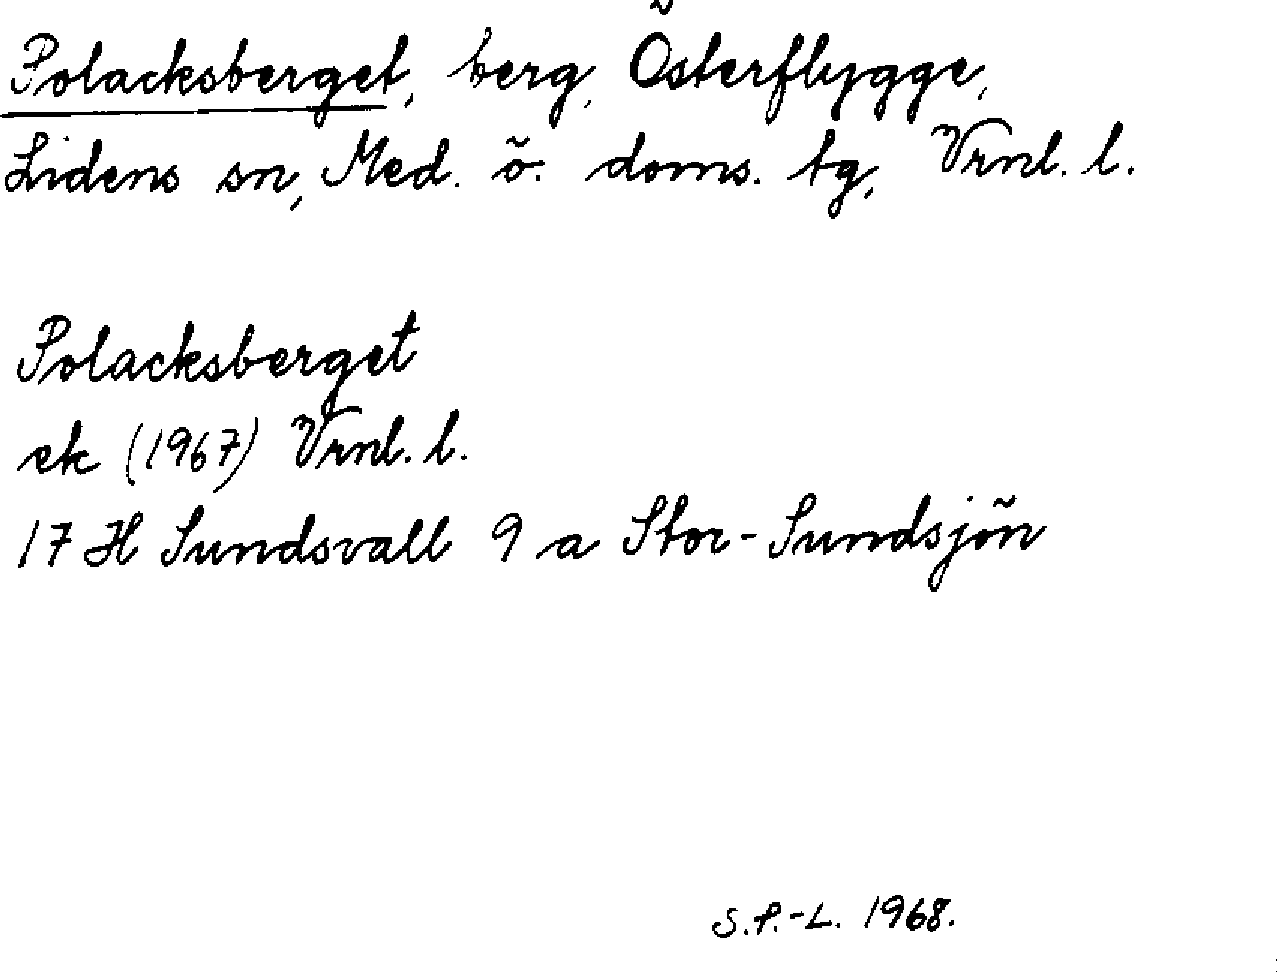 Polacksberget, berg, Österflygge,
Lidens sn, Med. ö. doms. tg, Vrnl. l.
Polacksberget
ek (1967) Vrnl. l.
17 H Sundsvall 9 a Stor-Sundsjön
S.P.-L. 1968.